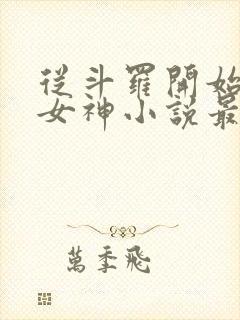 從斗羅開始
女神小說最
萬季飛